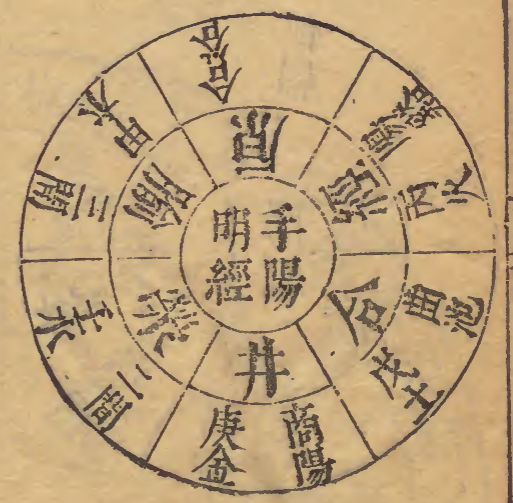 手陽
明經
井
滎
腧
原
經
合
商陽
庚金
二間
壬水
三間
甲木
合谷
陽谿
丙火
曲池
戊土